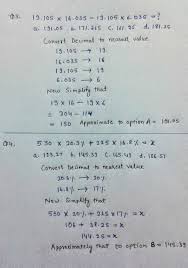 Q3. 19.105 × 16.035 - 19.105 × 6.035 = ?
a. 191.05 b. 171.265 c. 161.25 d. 181.25
Convert Decimal to nearest value
19.105 → 19
16.035 → 16
19.105 → 19
6.035 → 6
Now Simplify that
19 × 16 - 19 × 6
= 304 - 114
= 190 Approximate to option A - 191.05
Q4. 530 × 20.3% + 225 × 16.8% = x
a. 135.37 b. 145.39 c. 165.43 d. 156.37
Convert Decimal to nearest value
20.3% → 20%
16.8% → 17%
Now Simplify that
530 × 20% + 225 × 17% = x
106 + 38.25 = x
144.25 = x
Approximately that to option B = 145.39